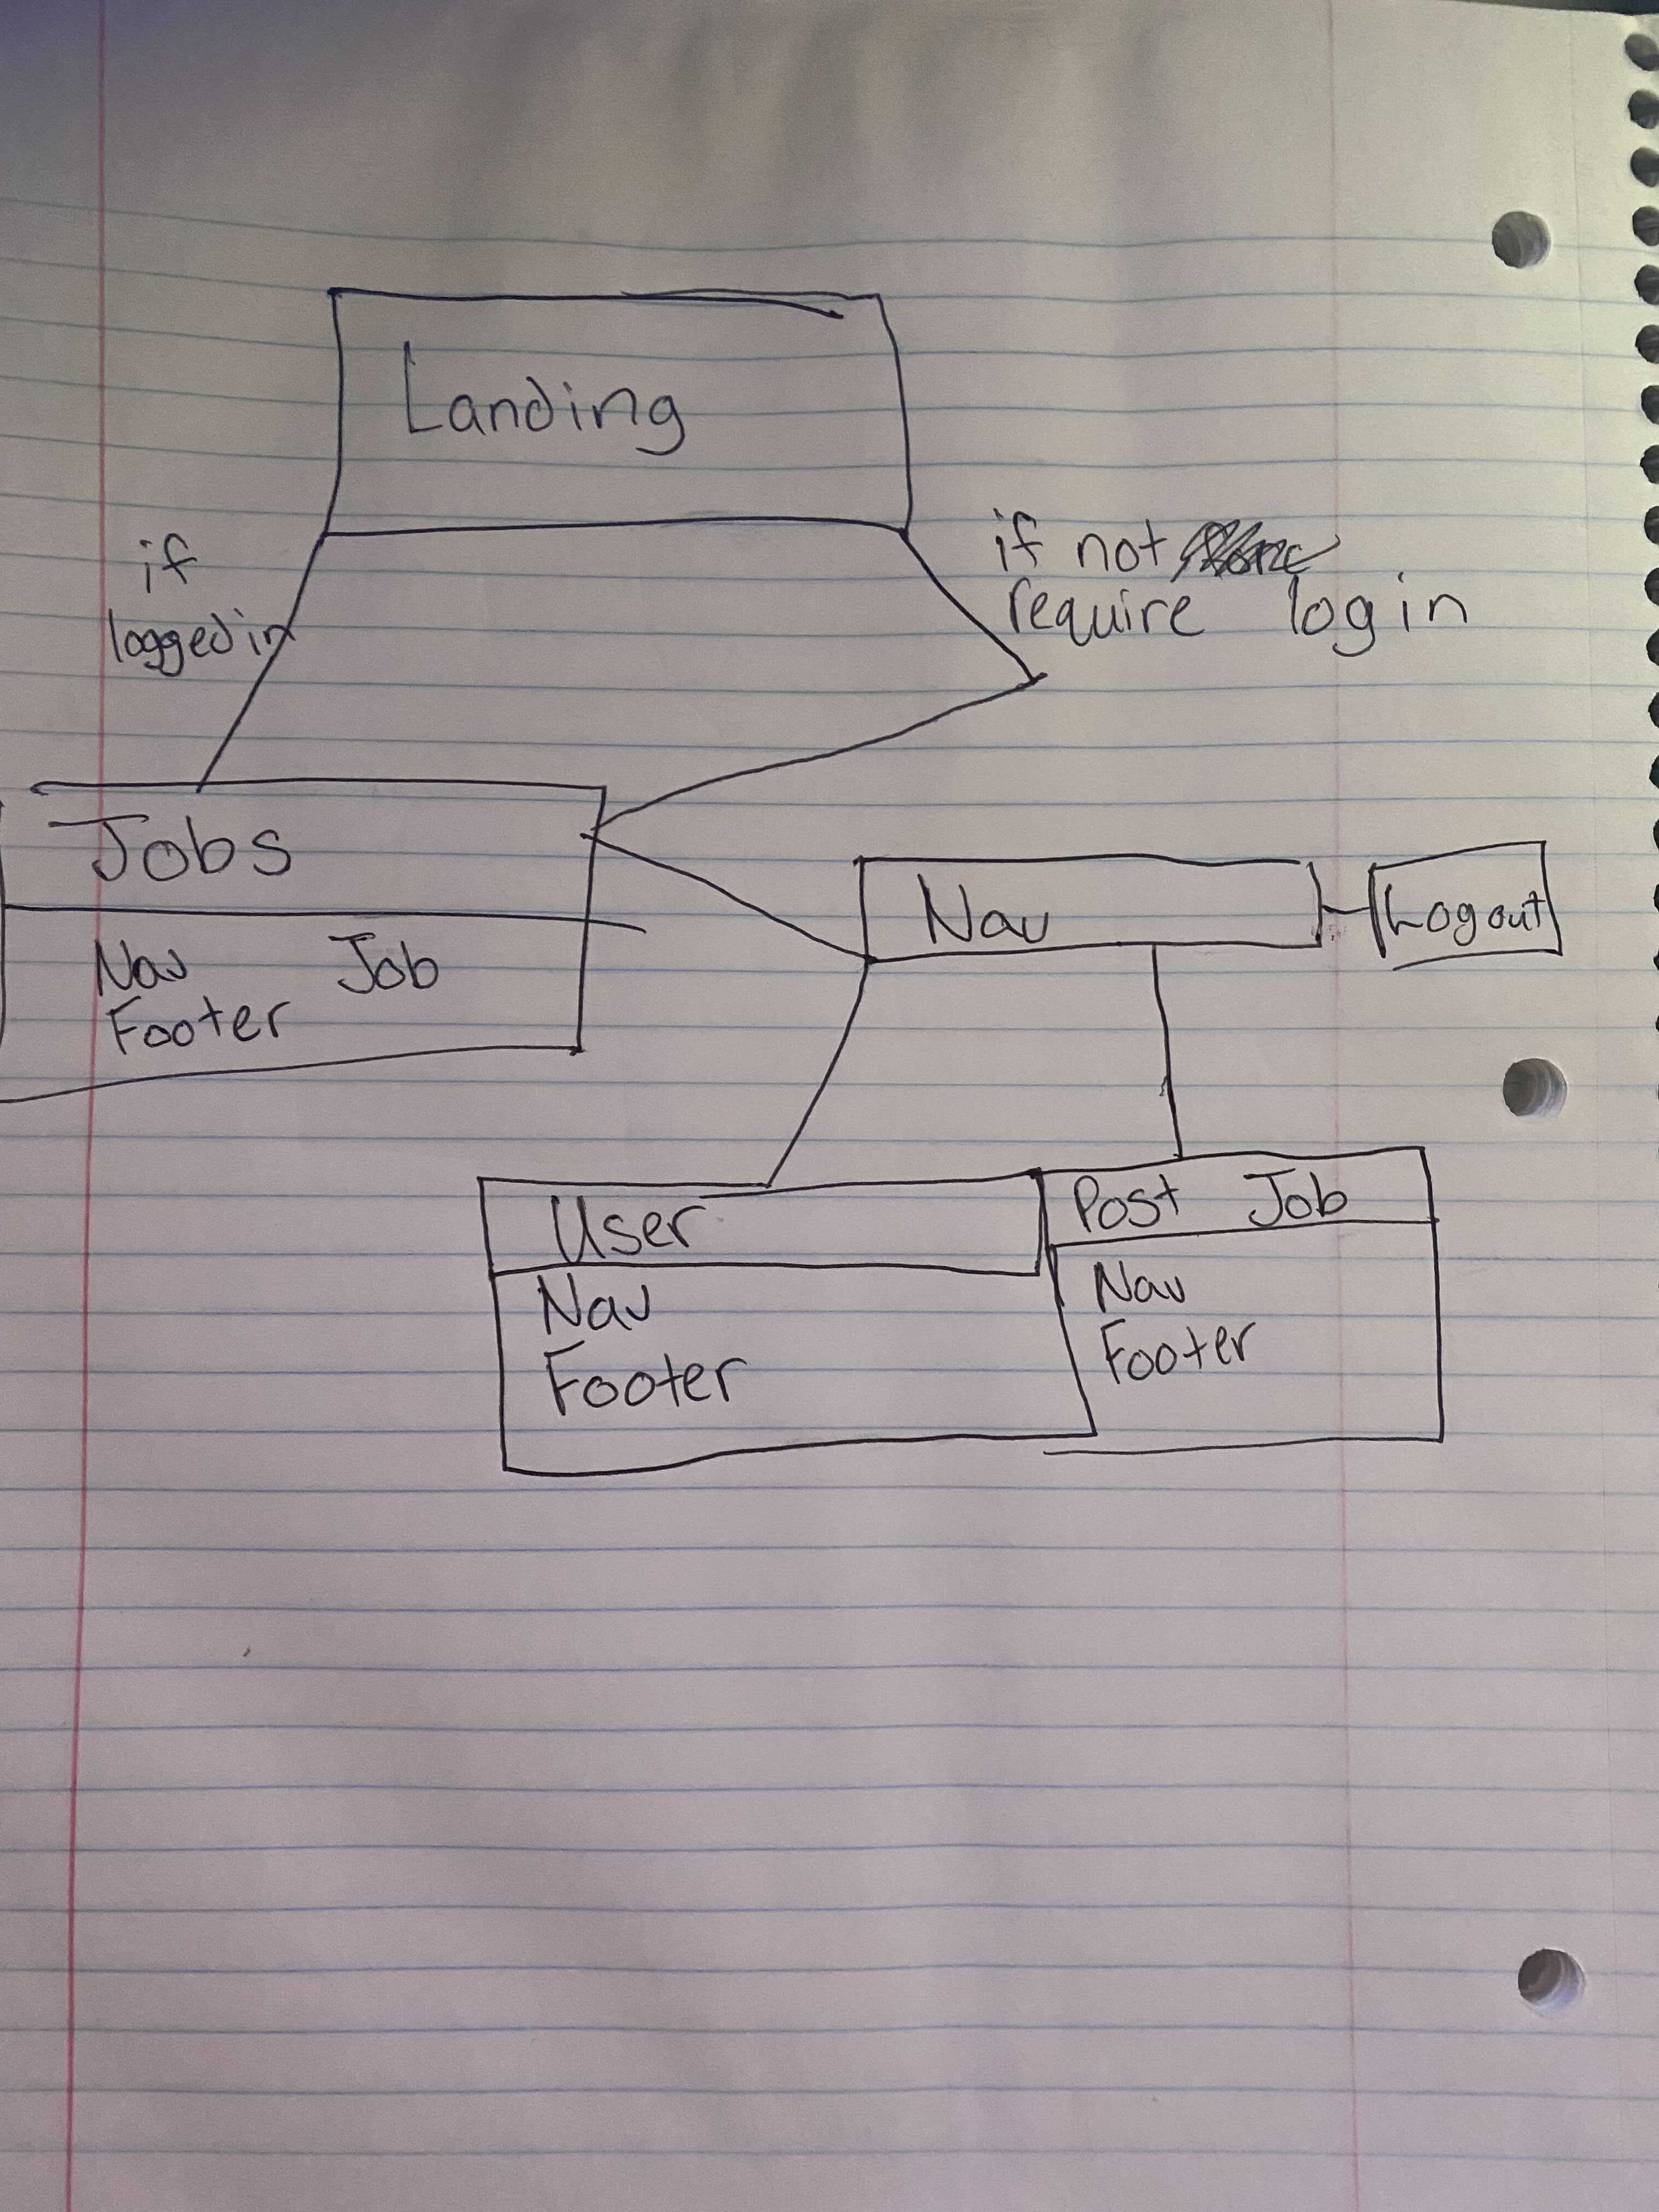 Landing
if
logged in
if not
require login
Jobs
Nav Job
Footer
Nav
Logout
User
Nav
Footer
Post Job
Nav
Footer